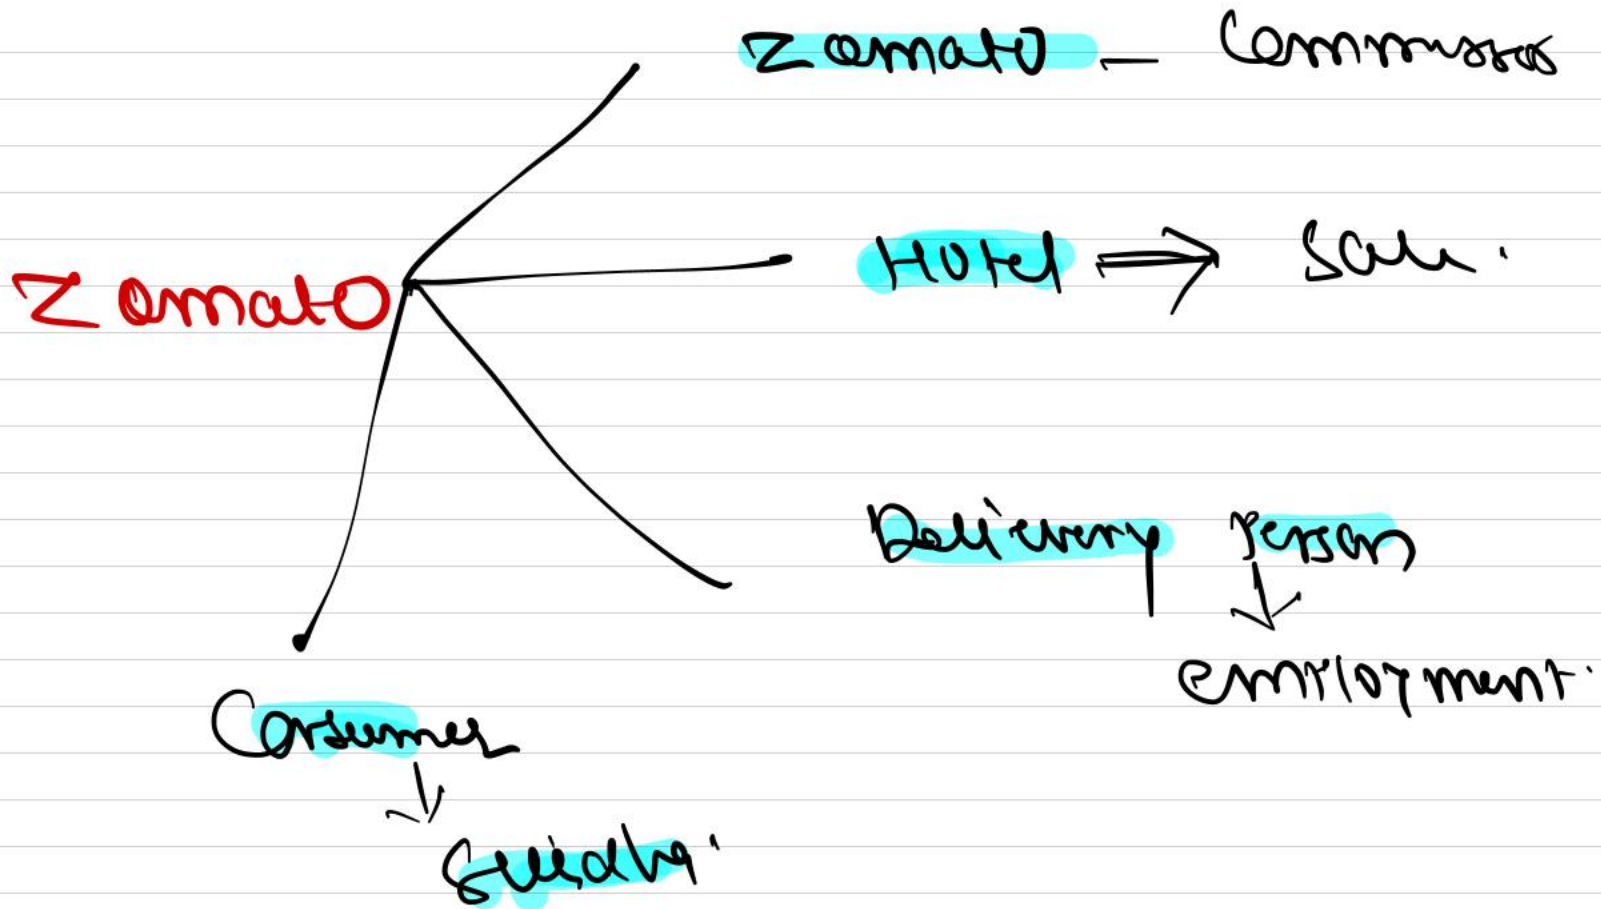 Zomato — Commission
Hotel ⇒ Sale.
Zomato
Delievery Person
↓
employment.
Consumer
↓
Suvidha.